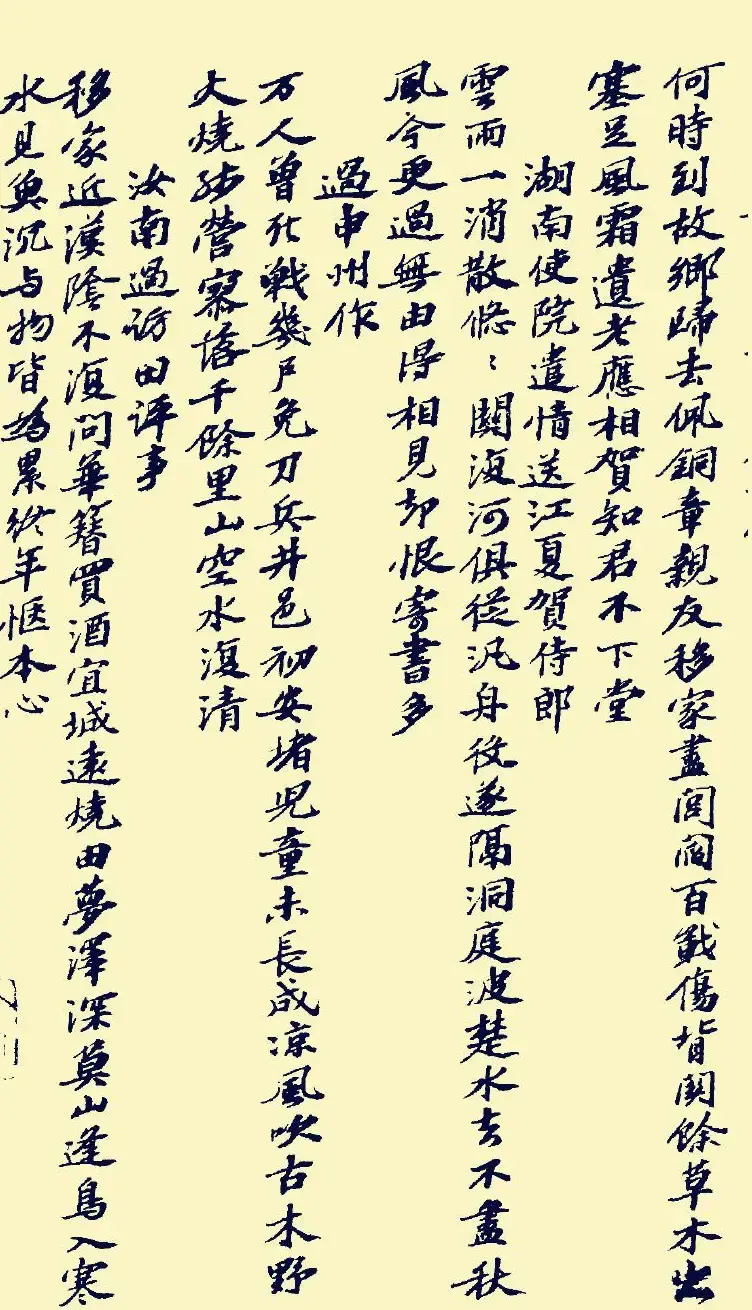 何時到故鄉歸去佩銅章親友移家盡閭閻百戰傷背關餘草木出
塞足風霜遺老應相賀知君不下堂
湖南使院遣情送江夏賀侍郎
雲雨一消散悠〻關復河俱從汎舟役遂隔洞庭波楚水去不盡秋
風今更過無由得相見却恨寄書多
過申州作
万人曾死戰幾戶免刀兵井邑初安堵兒童未長成凉風吹古木野
火燒殘營寥落千餘里山空水復清
汝南過訪田評事
移家近漢陰不復問華簪買酒宜城遠燒田夢澤深莫山逢鳥入寒
水見魚沉与物皆為累終年愜本心